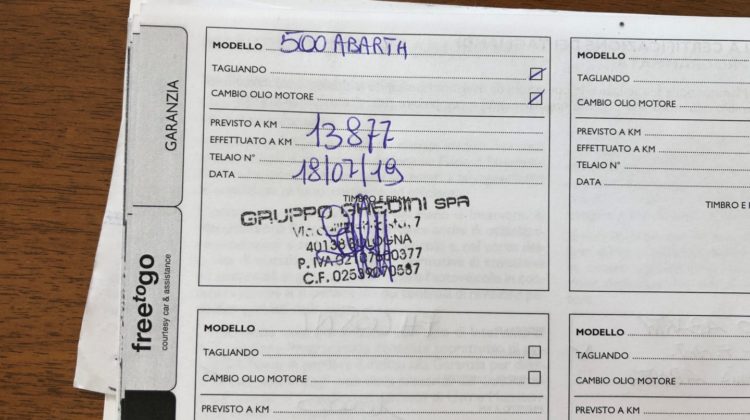 GARANZIA
freetogo
courtesy car & assistance
MODELLO 500 ABARTH
TAGLIANDO
CAMBIO OLIO MOTORE
PREVISTO A KM
EFFETTUATO A KM 13877
TELAIO N°
DATA 18/07/19
TIMBRO E FIRMA
GRUPPO GHEDINI SPA
40138 BOLOGNA
P. IVA
C.F.
MODELLO
TAGLIANDO
CAMBIO OLIO MOTORE
PREVISTO A KM
MODELLO
TAGLIANDO
CAMBIO OLIO MOTORE
PREVISTO A KM
EFFETTUATO A KM
TELAIO N°
DATA
TIMBRO E
MODELLO
TAGLIANDO
CAMBIO OLIO
PREVISTO A KM